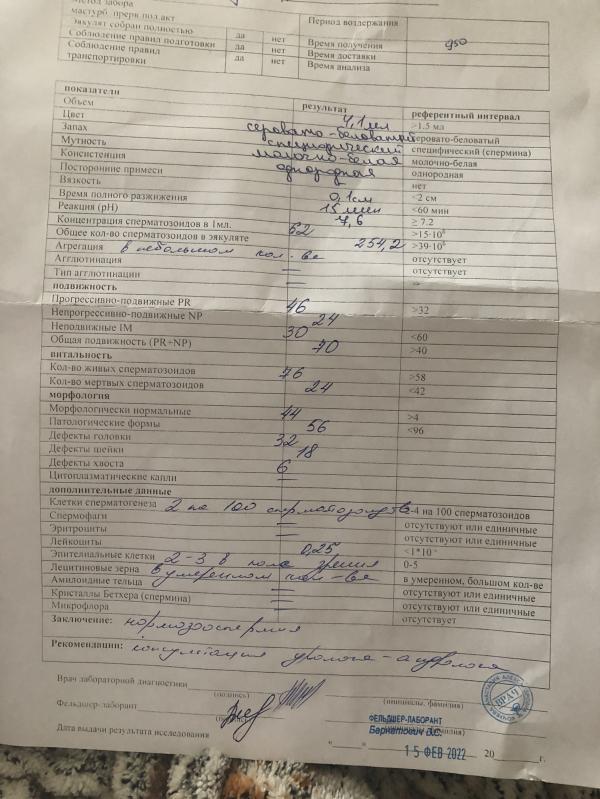 Метод забора
мастурб прерв пол акт
Эякулят собран полностью да нет Период воздержания
Соблюдение правил подготовки да нет Время получения 950
Соблюдение правил транспортировки да нет Время доставки
Время анализа
показатели результат референтный интервал
Объем 4,1 мл >1.5 мл
Цвет серовато-беловатый серовато-беловатый
Запах специфический специфический (спермина)
Мутность молочно-белая молочно-белая
Консистенция однородная однородная
Посторонние примеси нет
Вязкость 0,1 см <2 см
Время полного разжижения 15 мин <60 мин
Реакция (pH) 7,6 ≥ 7.2
Концентрация сперматозоидов в 1мл. 62 >15·10⁶
Общее кол-во сперматозоидов в эякуляте 254,2 >39·10⁶
Агрегация в небольшом кол-ве отсутствует
Агглютинация — отсутствует
Тип агглютинации — –
подвижность
Прогрессивно-подвижные PR 46 >32
Непрогрессивно-подвижные NP 24
Неподвижные IM 30 <60
Общая подвижность (PR+NP) 70 >40
витальность
Кол-во живых сперматозоидов 76 >58
Кол-во мертвых сперматозоидов 24 <42
морфология
Морфологически нормальные 44 >4
Патологические формы 56 <96
Дефекты головки 32
Дефекты шейки 18
Дефекты хвоста 6
Цитоплазматические капли —
дополнительные данные
Клетки сперматогенеза 2 на 100 сперматозоидов 2-4 на 100 сперматозоидов
Спермофаги — отсутствуют или единичные
Эритроциты — отсутствуют или единичные
Лейкоциты 0,25 <1*10
Эпителиальные клетки 2-3 в поле зрения 0-5
Лецитиновые зерна в умеренном кол-ве в умеренном, большом кол-ве
Амилоидные тельца — отсутствуют или единичные
Кристаллы Бетхера (спермина) — отсутствуют или единичные
Микрофлора — отсутствует
Заключение: нормозооспермия
Рекомендации: консультация уролога-андролога
Врач лабораторной диагностики
(подпись) (инициалы, фамилия)
Фельдшер-лаборант ФЕЛЬДШЕР-ЛАБОРАНТ
ВРАЧ
Дата выдачи результата исследования « » 15 ФЕВ 2022 20 г.